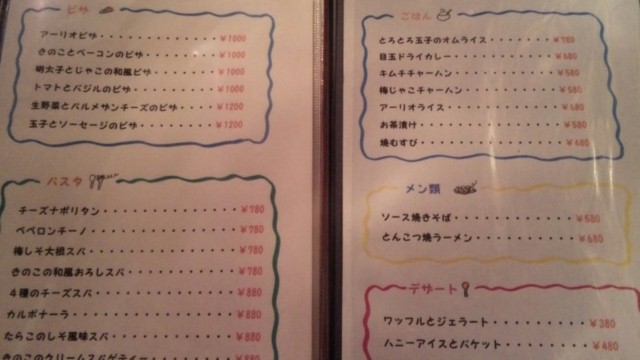 ピザ
アーリオピザ・・・・・・・・・・・・¥1000
きのことベーコンのピザ・・・・・・・¥1000
明太子とじゃこの和風ピザ・・・・・・¥1000
トマトとバジルのピザ・・・・・・・・¥1000
生野菜とパルメザンチーズのピザ・・・・¥1200
玉子とソーセージのピザ・・・・・・・・¥1200
パスタ
チーズナポリタン・・・・・・・・・・・・¥780
ペペロンチーノ・・・・・・・・・・・・・¥780
梅しそ大根スパ・・・・・・・・・・・・・¥780
きのこの和風おろしスパ・・・・・・・・・¥780
4種のチーズスパ・・・・・・・・・・・・¥880
カルボナーラ・・・・・・・・・・・・・・¥880
たらこのしそ風味スパ・・・・・・・・・・¥880
きのこのクリームスパゲティー・・・・・・¥880
ごはん
とろとろ玉子のオムライス・・・・・・¥780
目玉ドライカレー・・・・・・・・・・¥680
キムチチャーハン・・・・・・・・・・¥580
梅じゃこチャーハン・・・・・・・・・¥580
アーリオライス・・・・・・・・・・・¥680
お茶漬け・・・・・・・・・・・・・・¥580
焼むすび・・・・・・・・・・・・・・¥480
メン類
ソース焼きそば・・・・・・・・・・・¥580
とんこつ焼ラーメン・・・・・・・・・¥680
デザート
ワッフルとジェラート・・・・・・・・¥380
ハニーアイスとバケット・・・・・・・¥480